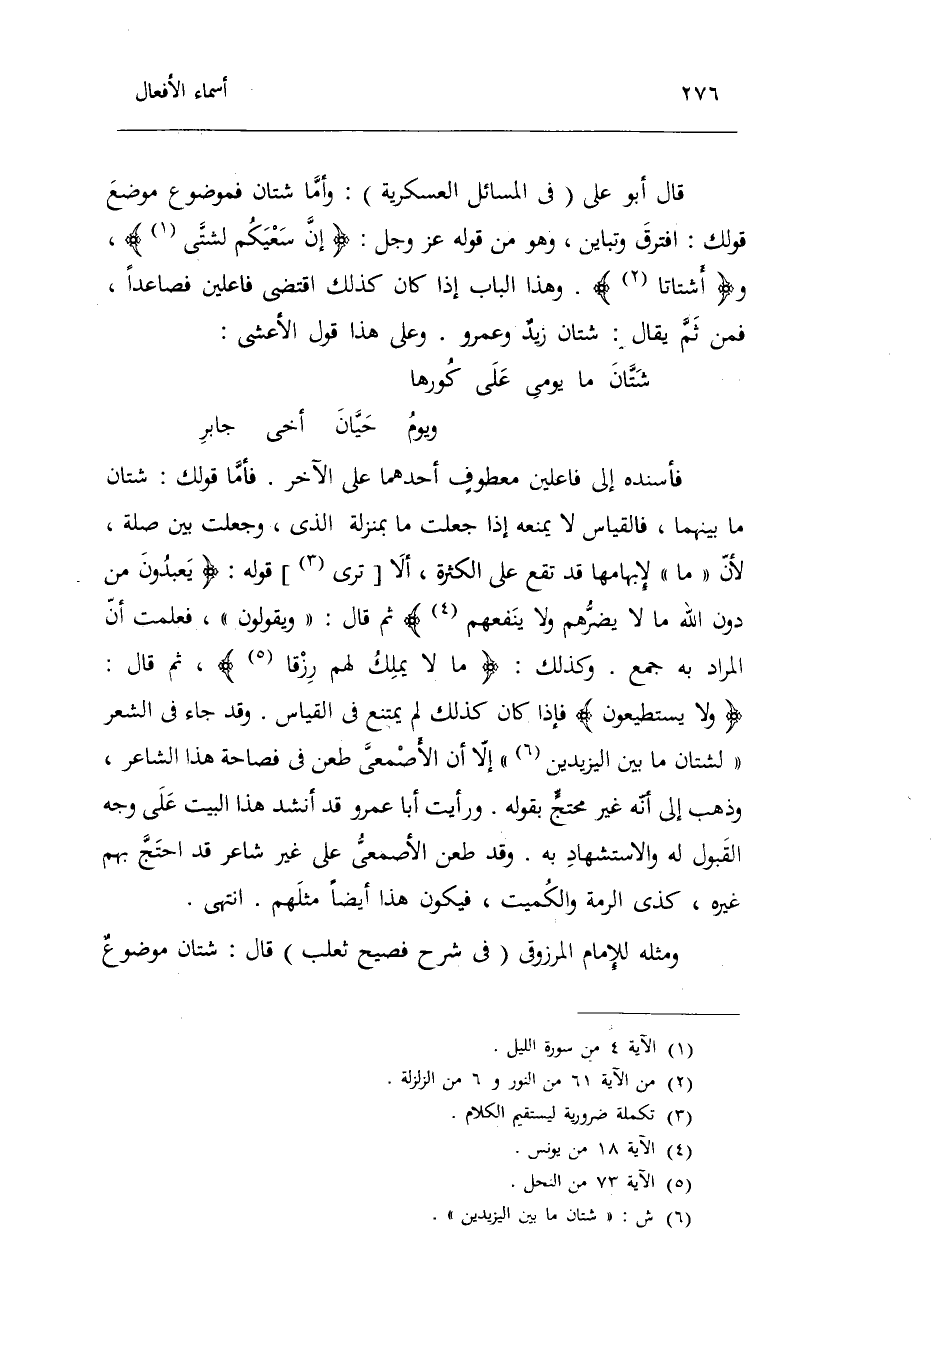 ٢٧٦ أسماء الأفعال
قال أبو على ( فى المسائل العسكرية ) : وأمَّا شتان فموضوع موضعَ
قولك : افترقَ وتباين ، وهو من قوله عز وجل : ﴿ إنَّ سَعْيَكُم لشتَّى (١) ﴾ ،
و﴿ أَشتاتا (٢) ﴾ . وهذا الباب إذا كان كذلك اقتضى فاعلين فصاعداً ،
فمن ثَمَّ يقال : شتان زيدٌ وعمرو . وعلى هذا قول الأعشى :
شَتَّانَ ما يومى عَلَى كُورها
ويومُ حَيَّانَ أخى جابرِ
فأسنده إلى فاعلين معطوفٍ أحدهما على الآخر . فأمَّا قولك : شتان
ما بينهما ، فالقياس لا يمنعه إذا جعلت ما بمنزلة الذى ، وجعلت بين صلة ،
لأنّ « ما » لإبهامها قد تقع على الكثرة ، ألَا [ ترى (٣) ] قوله : ﴿ يَعبدُونَ من
دون الله ما لا يضرُّهم ولا ينَفعهم (٤) ﴾ ثم قال : « ويقولون » ، فعلمت أنّ
المراد به جمع . وكذلك : ﴿ ما لا يملِكُ لهم رِزْقا (٥) ﴾ ، ثم قال :
﴿ ولا يستطيعون ﴾ فإذا كان كذلك لم يمتنع فى القياس . وقد جاء فى الشعر
« لشتان ما بين اليزيدين (٦) » إلّا أن الأَصْمعىَّ طعن فى فصاحة هذا الشاعر ،
وذهب إلى أنّه غير محتجٍّ بقوله . ورأيت أبا عمرو قد أنشد هذا البيت عَلَى وجه
القَبول له والاستشهادِ به . وقد طعن الأصمعىُّ على غير شاعر قد احتَجَّ بهم
غيره ، كذى الرمة والكُميت ، فيكون هذا أيضاً مثلَهم . انتهى .
ومثله للإمام المرزوقى ( فى شرح فصيح ثعلب ) قال : شتان موضوعٌ
(١) الآية ٤ من سورة الليل .
(٢) من الآية ٦١ من النور و ٦ من الزلزلة .
(٣) تكملة ضرورية ليستقيم الكلام .
(٤) الآية ١٨ من يونس .
(٥) الآية ٧٣ من النحل .
(٦) ش : « شتان ما بين اليزيدين » .